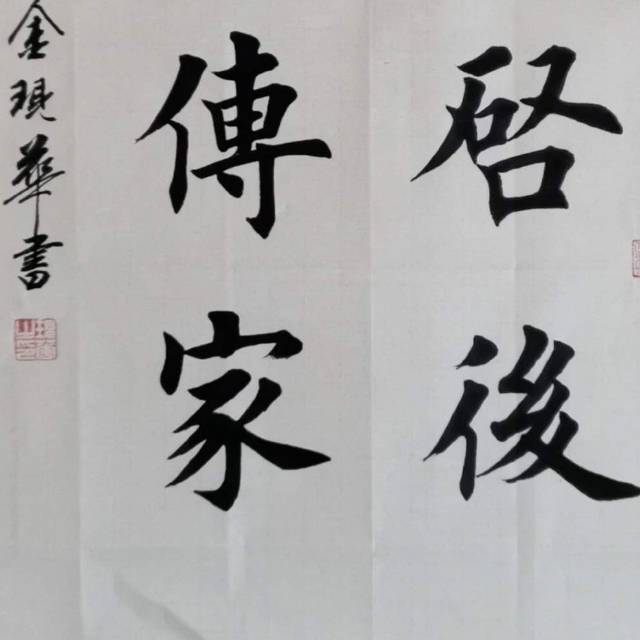 啓後
傳家
金現華書